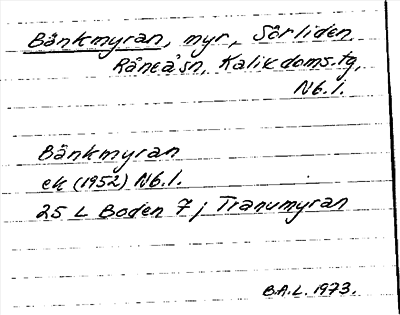 Bänkmyran, myr, Sörliden,
Råneå sn, Kalix doms.tg,
Nb.l.
Bänkmyran
ek (1952) Nb.l.
25 L Boden 7 j Tranumyran
B.A.L. 1973.